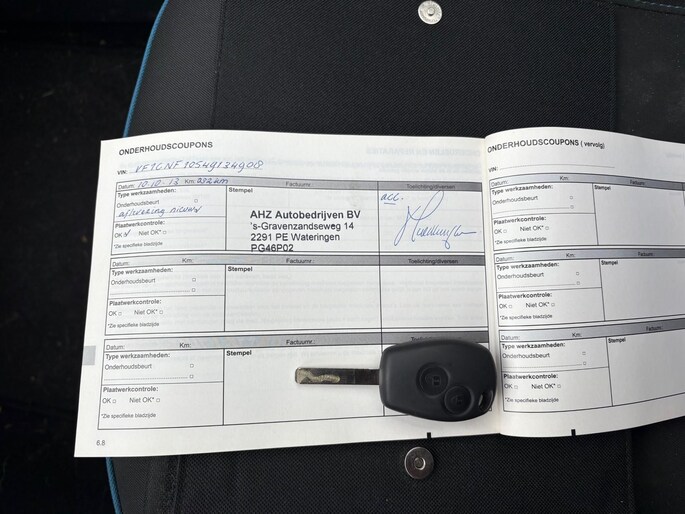 ONDERHOUDSCOUPONS
VIN: VF1GNF10549134908
Datum: 10-10-13 Km: Factuurnr.: Toelichting/diversen
Type werkzaamheden: Stempel
Onderhoudsbeurt
aflevering nieuw
acc.
AHZ Autobedrijven BV
's-Gravenzandseweg 14
2291 PE Wateringen
PG46P02
Plaatwerkcontrole:
OK Niet OK*
*Zie specifieke bladzijde
Datum: Km: Factuurnr.: Toelichting/diversen
Type werkzaamheden: Stempel
Onderhoudsbeurt
Plaatwerkcontrole:
OK Niet OK*
*Zie specifieke bladzijde
Datum: Km: Factuurnr.:
Type werkzaamheden: Stempel
Onderhoudsbeurt
Plaatwerkcontrole:
OK Niet OK*
*Zie specifieke bladzijde
6.8
ONDERHOUDSCOUPONS ( vervolg)
VIN:
Datum: Km:
Type werkzaamheden: Stempel
Onderhoudsbeurt
Plaatwerkcontrole:
OK Niet OK*
*Zie specifieke bladzijde
Datum: Km:
Type werkzaamheden: Stempel
Onderhoudsbeurt
Plaatwerkcontrole:
OK Niet OK*
*Zie specifieke bladzijde
Datum: Km:
Type werkzaamheden: Stempel
Onderhoudsbeurt
Plaatwerkcontrole:
OK Niet OK*
*Zie specifieke bladzijde